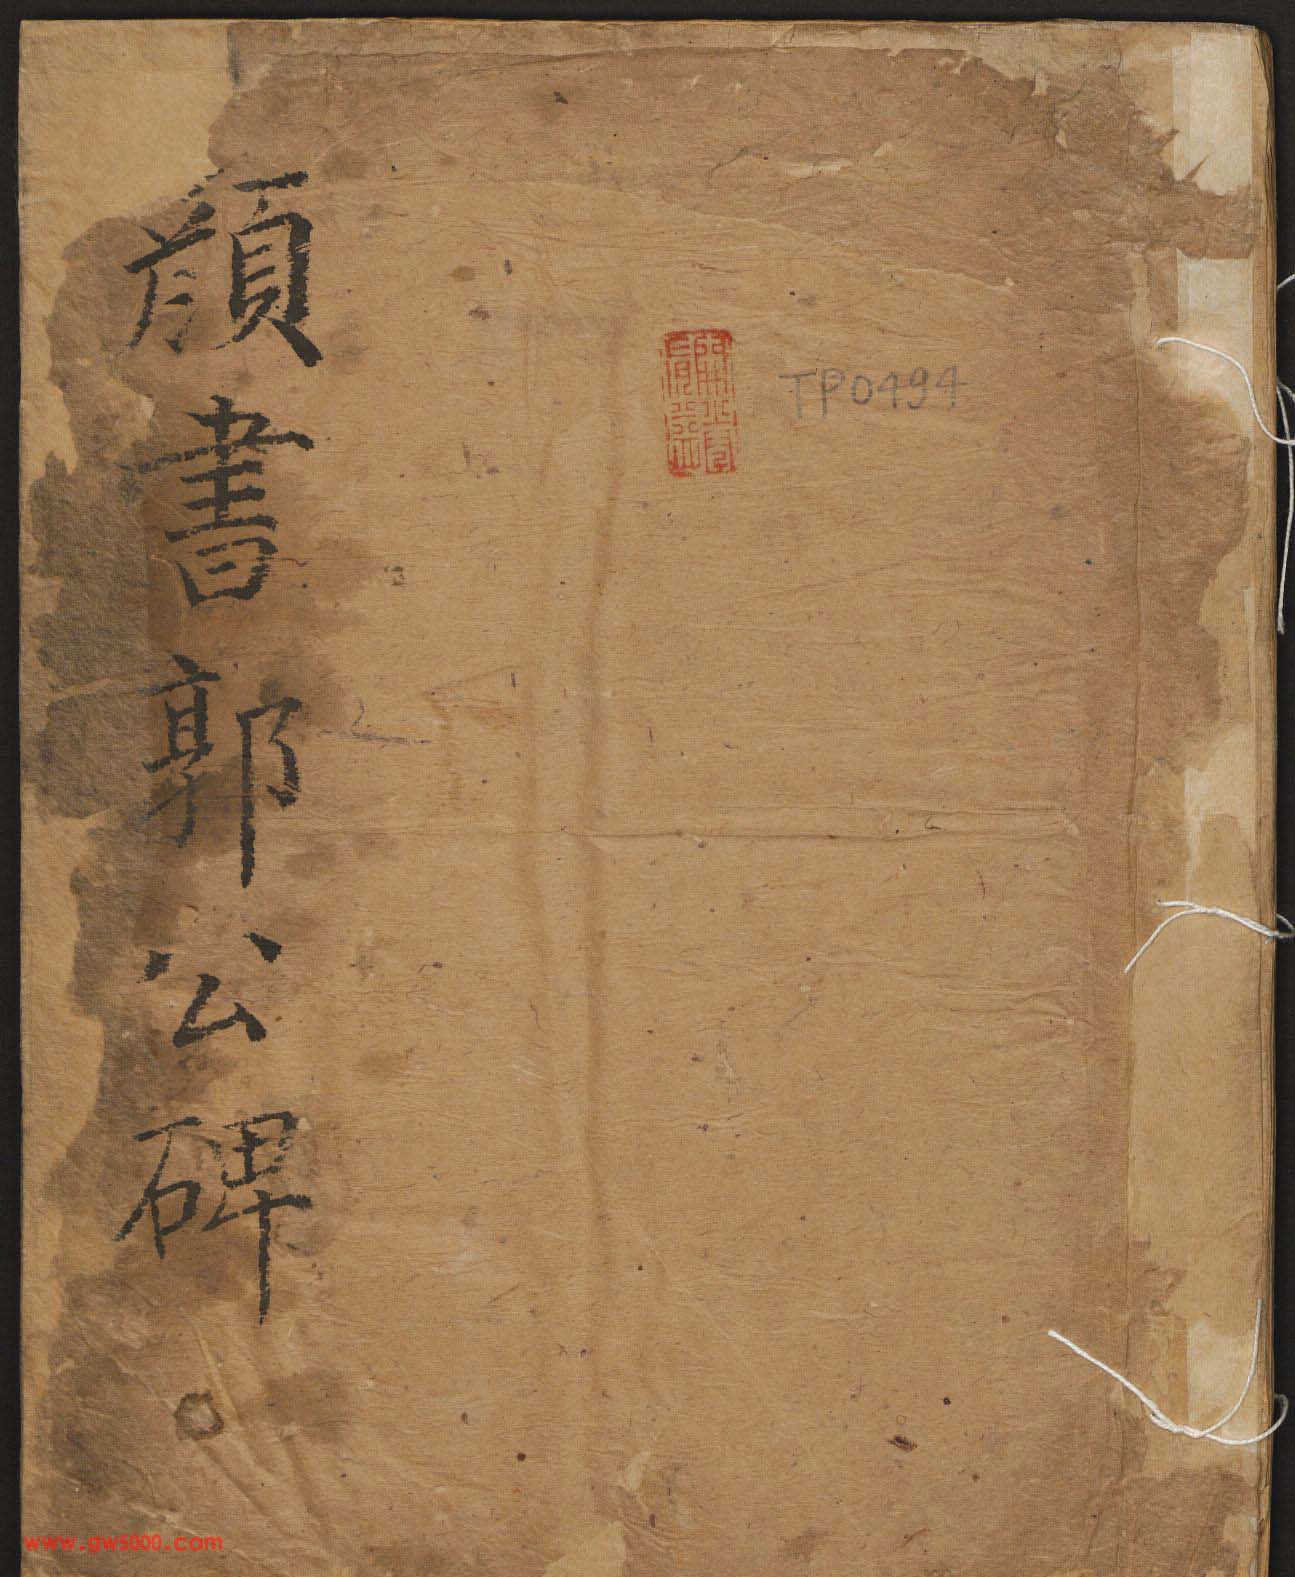 顔書郭公碑
TP0494
www.gw5000.com